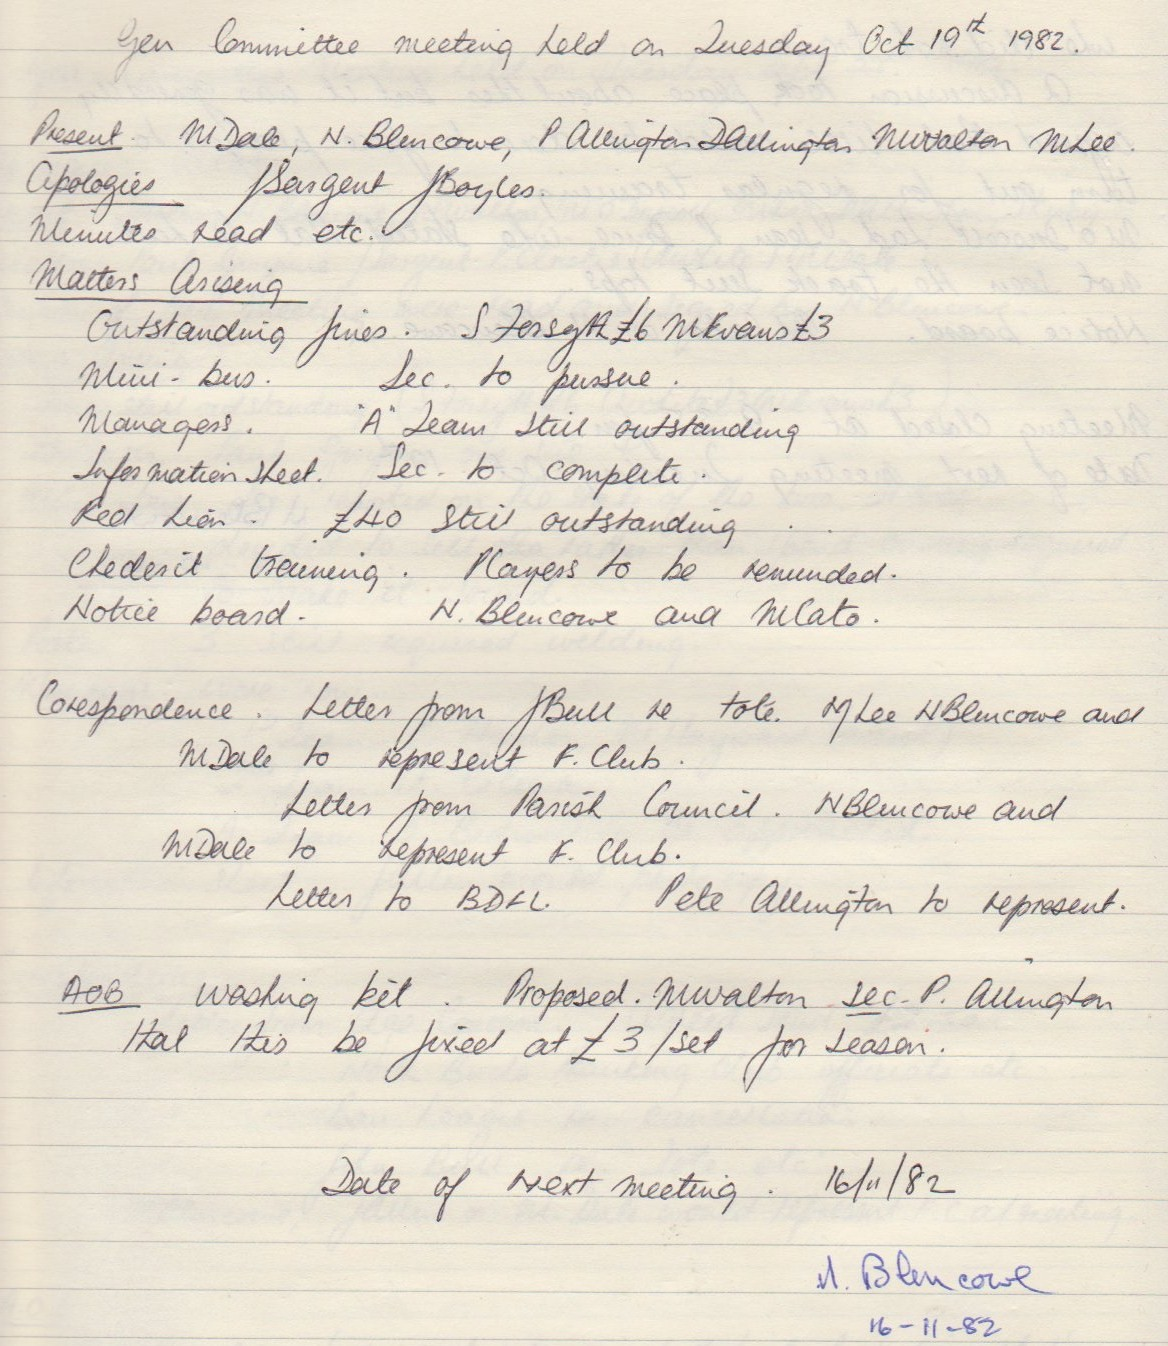 Gen Committee meeting held on Tuesday Oct 19th 1982.
Present. M Dale, N. Blencowe, P Allington D Allington M Walton M Lee.
Apologies J Sargent J Boyles.
Minutes read etc.
Matters Arising
Outstanding fines. S Forsyth £6 M Evans £3
Mini-bus. Sec. to pursue.
Managers. "A" Team still outstanding
Information Sheet. Sec. to complete.
Red Lion. £40 still outstanding
Chederit training. Players to be reminded.
Notice board. N. Blencowe and M Cato.
Corespondence. Letter from J Bull re tote. M Lee N Blencowe and
M Dale to represent F. Club.
Letter from Parish Council. N Blencowe and
M Dale to represent F. Club.
Letter to BDFL. Pete Allington to represent.
AOB Washing kit. Proposed. M Walton Sec. P. Allington
that this be fixed at £3/set for season.
Date of next meeting. 16/11/82
N. Blencowe
16-11-82